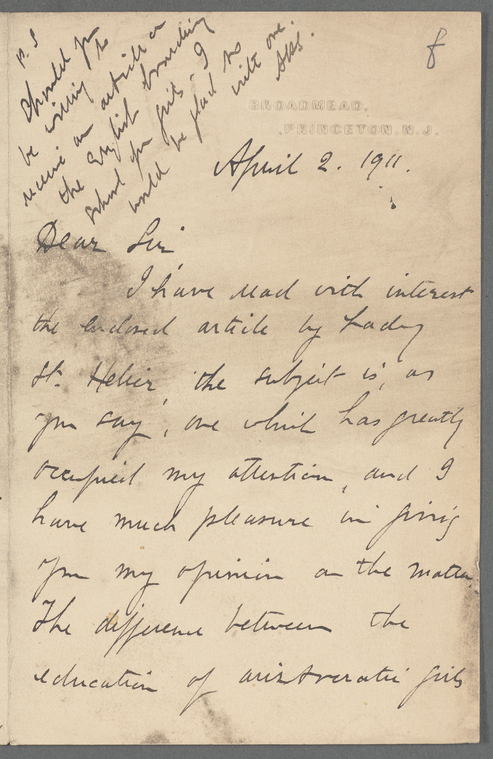 P.S
Should you
be willing to
receive an article on
the English boarding
school for girls I
would be glad to
write one.
8
BROADMEAD,
PRINCETON, N.J.
April 2. 1911.
Dear Sir
I have read with interest
the enclosed article by Lady
St. Helier, the subject is, as
you say, one which has greatly
occupied my attention, and I
have much pleasure in giving
you my opinion on the matter.
The difference between the
education of aristocratic girls